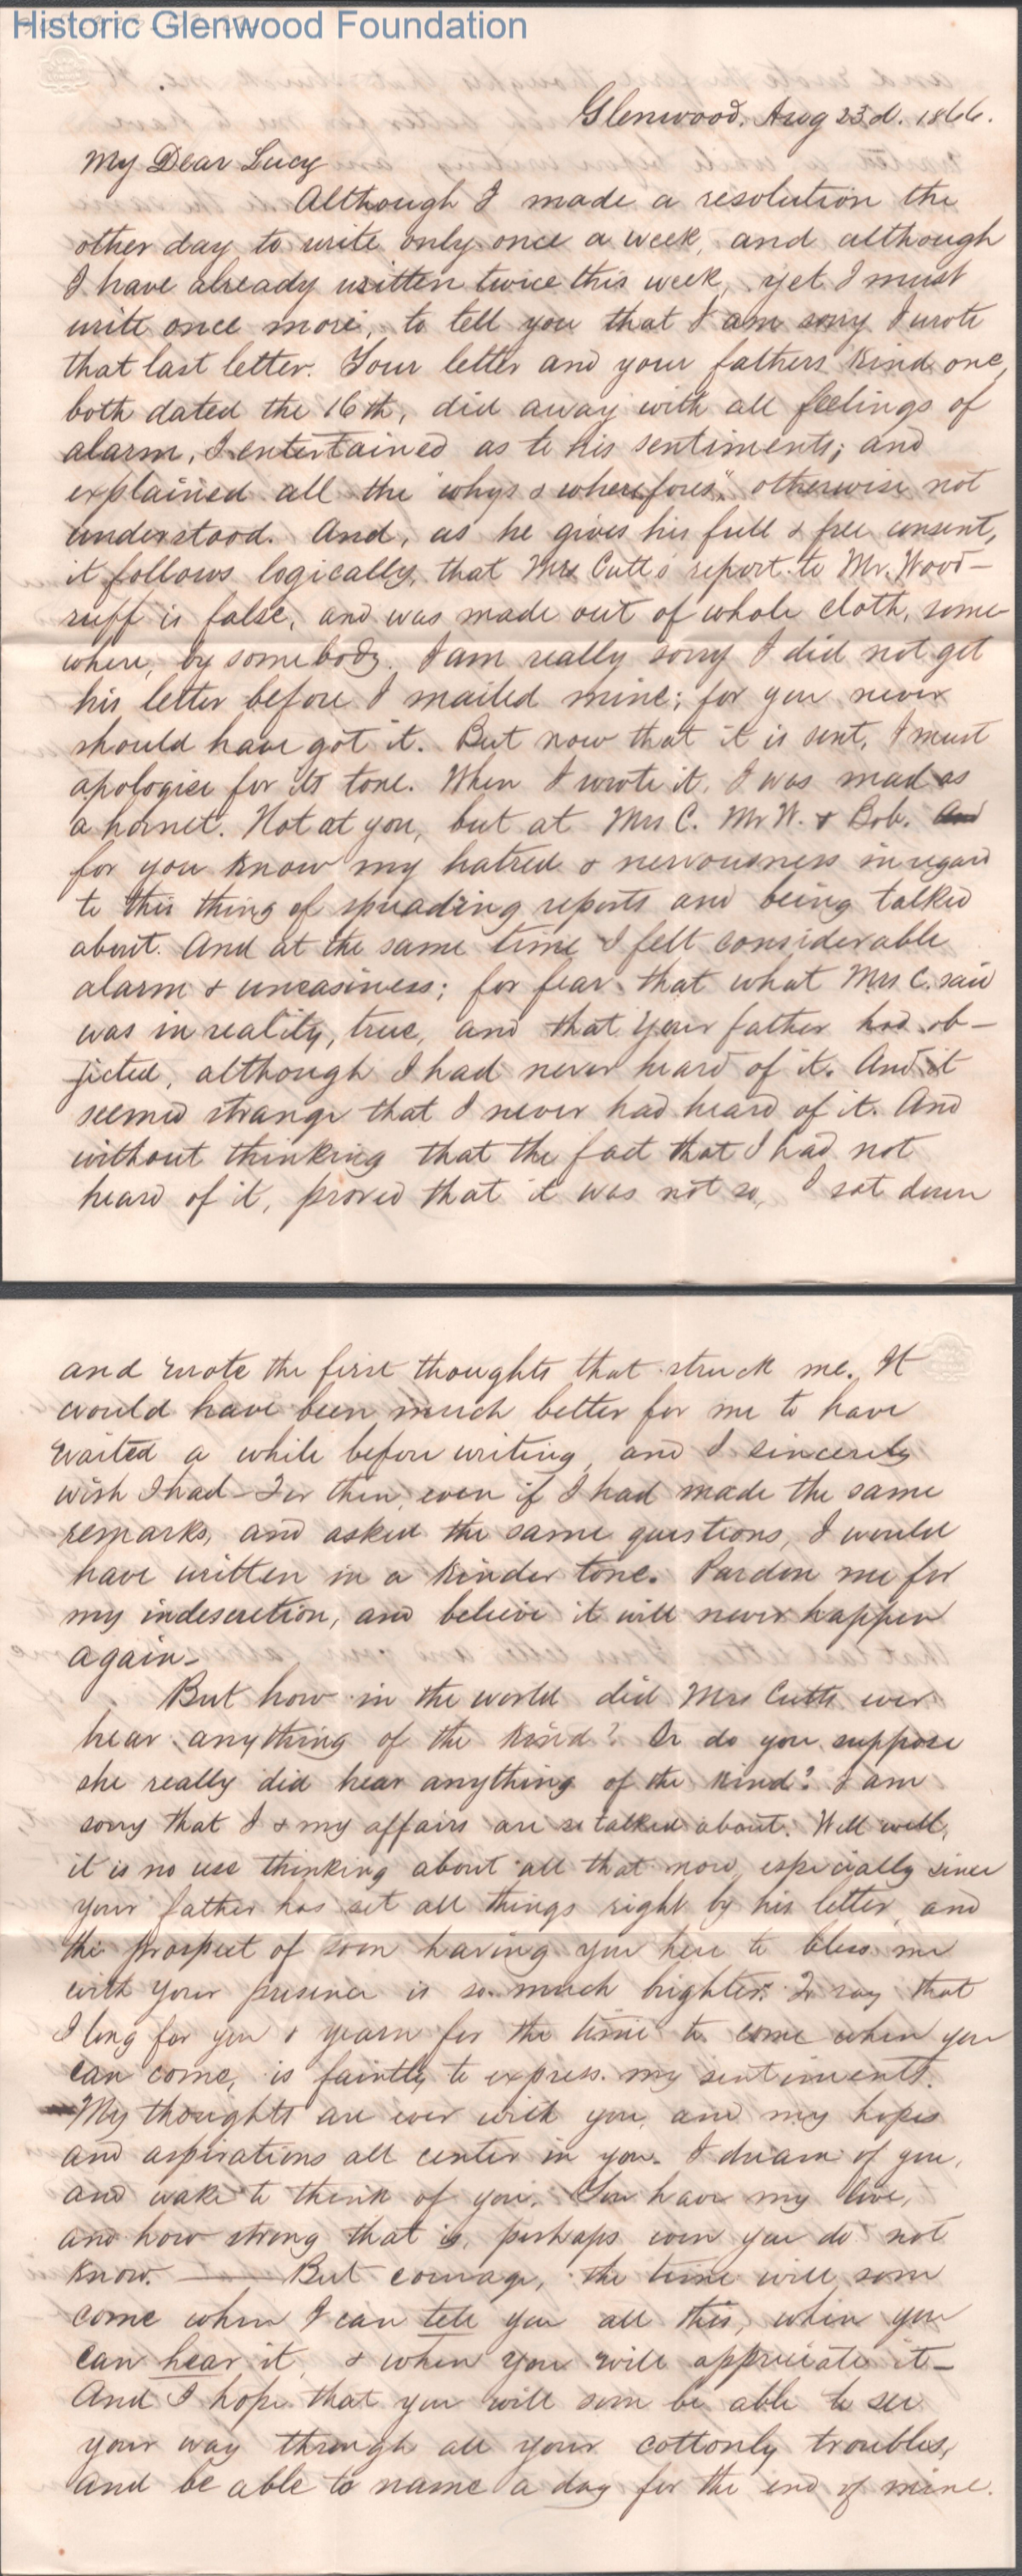 Historic Glenwood Foundation
Glenwood. Aug 23d. 1866.
My Dear Lucy
Although I made a resolution the
other day to write only once a week, and although
I have already written twice this week, yet I must
write once more, to tell you that I am sorry I wrote
that last letter. Your letter and your fathers kind one,
both dated the 16th, did away with all feelings of
alarm, I entertained as to his sentiments; and
explained all the "whys & wherefores", otherwise not
understood. And, as he gives his full & free consent,
it follows logically, that Mrs Cutts report to Mr. Wood-
ruff is false, and was made out of whole cloth, some-
where, by somebody. I am really sorry I did not get
his letter before I mailed mine; for you never
should have got it. But now that it is sent, I must
apologise for its tone. When I wrote it, I was mad as
a hornet. Not at you, but at Mrs C. Mr W. & Bob. And
for you know my hatred & nervousness in regard
to this thing of spreading reports and being talked
about. And at the same time I felt considerable
alarm & uneasiness; for fear that what Mrs C. said
was in reality, true, and that your father had ob-
jected, although I had never heard of it. And it
seemed strange that I never had heard of it. And
without thinking that the fact that I had not
heard of it, proved that it was not so, I sat down
and wrote the first thoughts that struck me. It
would have been much better for me to have
waited a while before writing, and I sincerely
wish I had - For then, even if I had made the same
remarks, and asked the same questions, I would
have written in a kinder tone. Pardon me for
my indescretion, and believe it will never happen
again -
But how in the world did Mrs Cutts ever
hear anything of the kind? Or do you suppose
she really did hear anything of the kind? I am
sorry that I & my affairs are so talked about. Well well,
it is no use thinking about all that now, especially since
your father has set all things right by his letter, and
the prospect of soon having you here to bless me
with your presence is so much brighter. To say that
I long for you & yearn for the time to come when you
can come, is faintly to express my sentiments.
My thoughts are ever with you, and my hopes
and aspirations all center in you. I dream of you,
and wake to think of you. You have my love,
and how strong that is, perhaps even you do not
know. — But courage, the time will soon
come when I can tell you all this, when you
can hear it, & when you will appreciate it -
And I hope that you will soon be able to see
your way through all your cottonly troubles,
and be able to name a day for the end of mine.